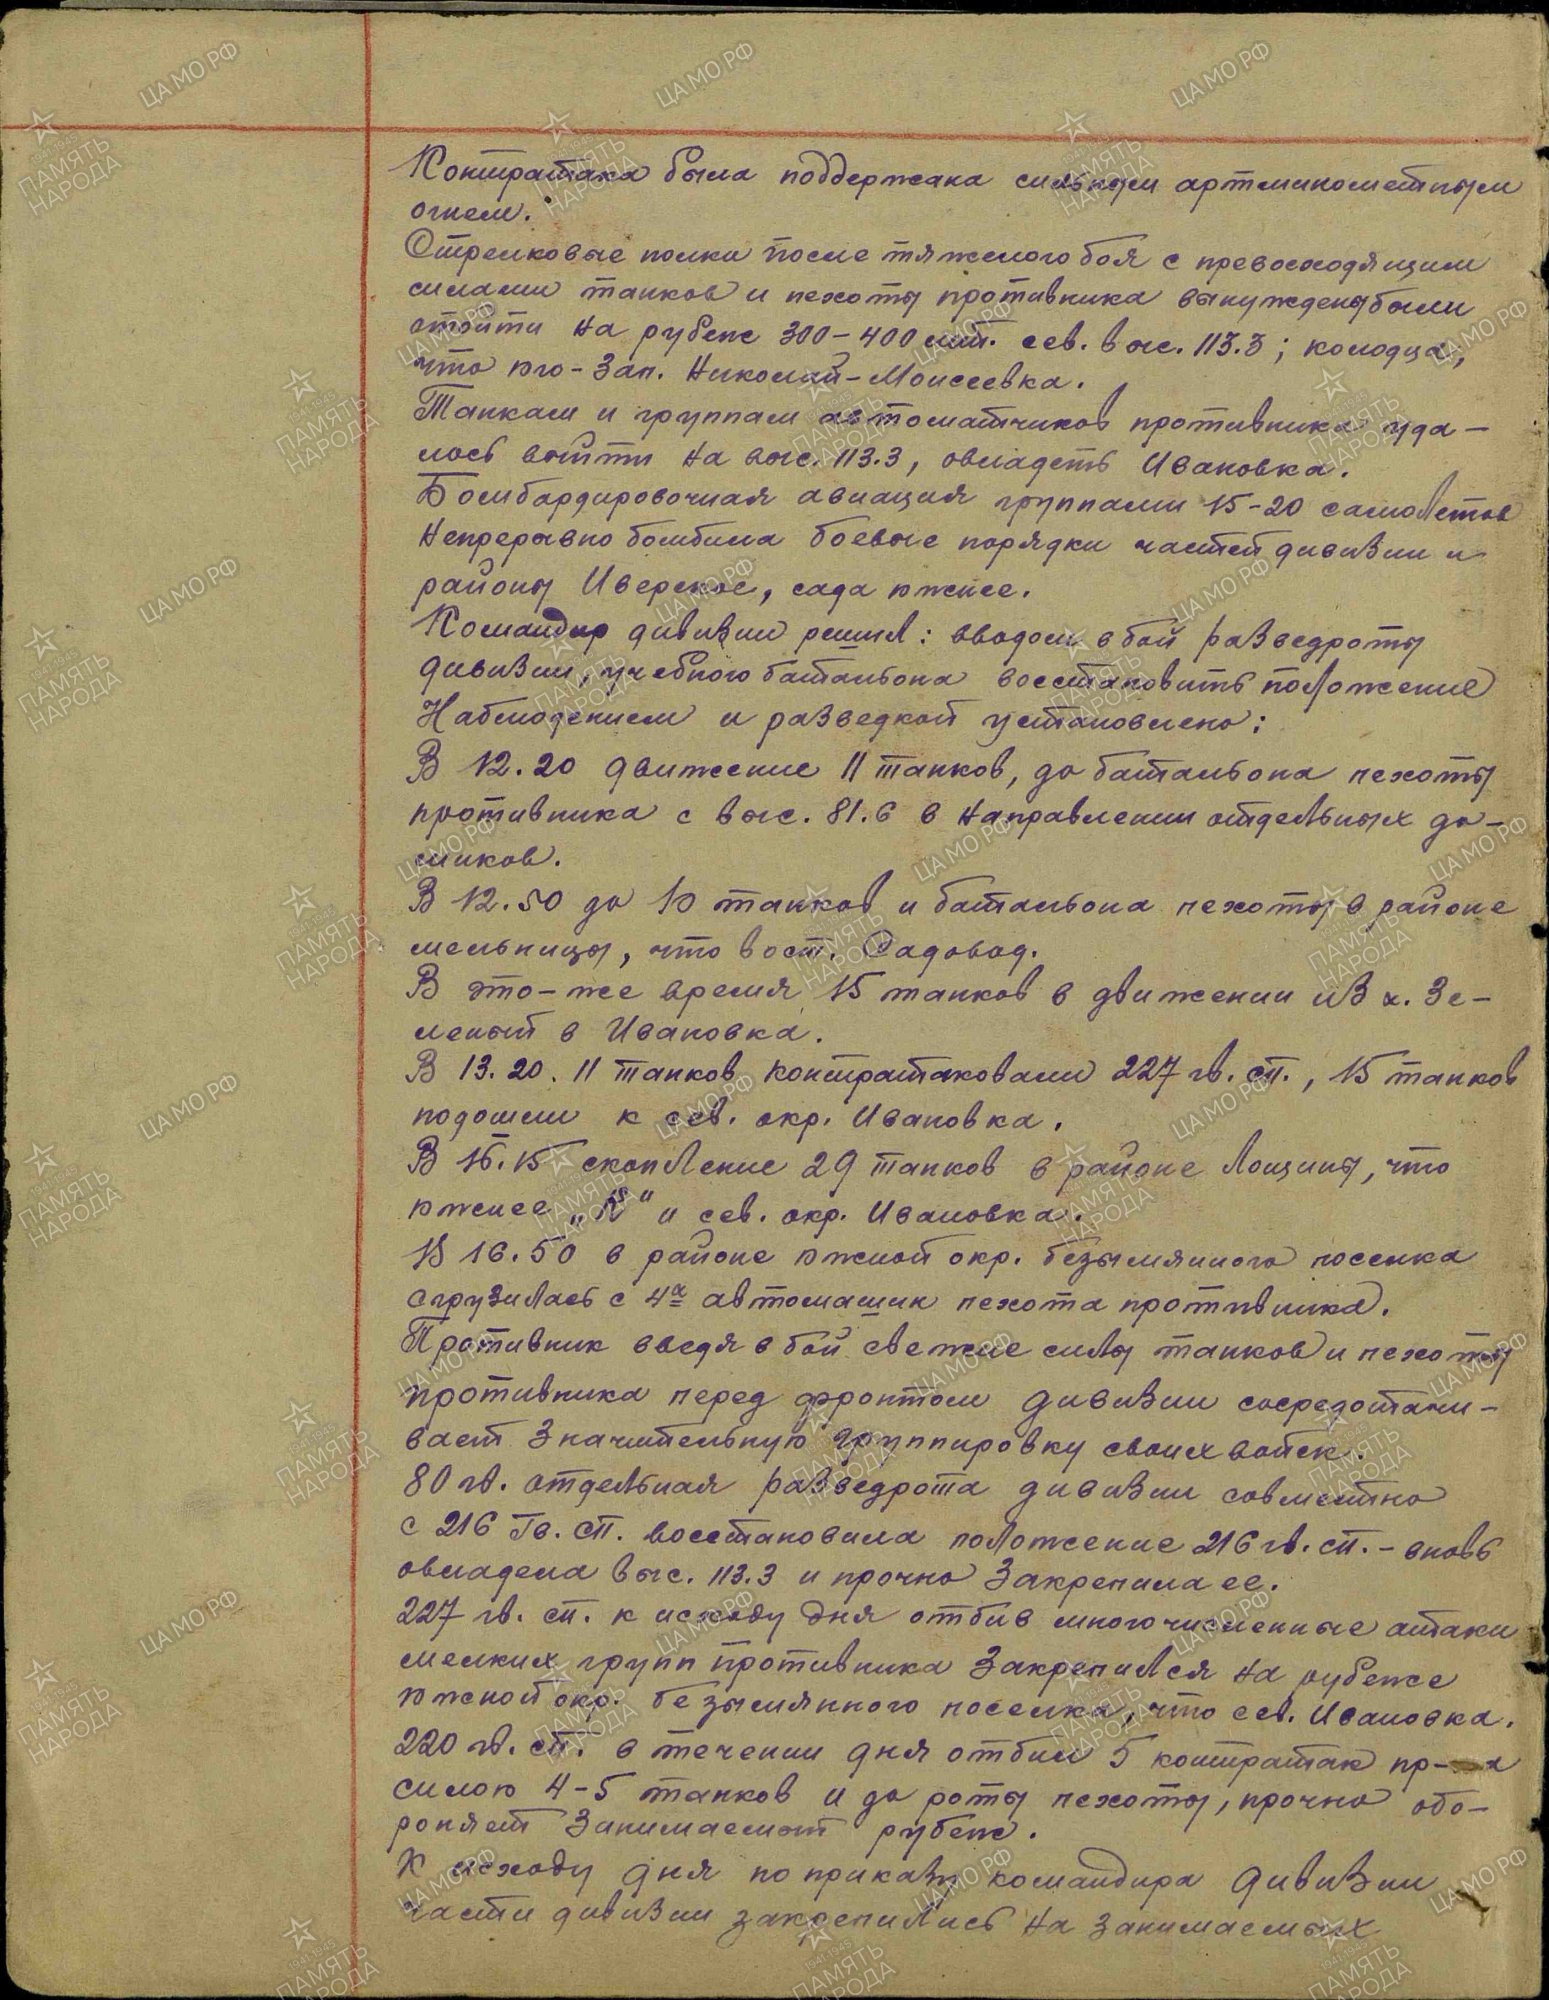 Контратака была поддержана сильным артминометным
огнем.
Стрелковые полки после тяжелого боя с превосходящими
силами танков и пехоты противника вынуждены были
отойти на рубеж 300-400 мт. сев. выс. 113.3; колодца,
что юго-зап. Николай-Моисеевка.
Танкам и группам автоматчиков противника уда-
лось выйти на выс. 113.3, овладеть Ивановка.
Бомбардировочная авиация группами 15-20 самолетов
непрерывно бомбила боевые порядки частей дивизии и
районы Иверское, сада южнее.
Командир дивизии решил: вводом в бой разведроты
дивизии, учебного батальона восстановить положение
Наблюдением и разведкой установлено:
В 12.20 движение 11 танков, до батальона пехоты
противника с выс. 81.6 в направлении отдельных до-
миков.
В 12.50 до 10 танков и батальона пехоты в районе
мельницы, что вост. Садовод.
В это-же время 15 танков в движении из х. Зе-
леный в Ивановка.
В 13.20. 11 танков контратаковали 227 гв. сп., 15 танков
подошли к сев. окр. Ивановка.
В 16.15 скопление 29 танков в районе лощины, что
южнее „К" и сев. окр. Ивановка.
В 16.50 в районе южной окр. безымянного поселка
сгрузилась с 4х автомашин пехота противника.
Противник введя в бой свежие силы танков и пехоты
противника перед фронтом дивизии сосредотачи-
вает значительную группировку своих войск.
80 гв. отдельная разведрота дивизии совместно
с 216 Гв. сп. восстановила положение 216 гв. сп. - вновь
овладела выс. 113.3 и прочно закрепила ее.
227 гв. сп. к исходу дня отбив многочисленные атаки
мелких групп противника закрепился на рубеже
южной окр. безымянного поселка, что сев. Ивановка.
220 гв. сп. в течении дня отбил 5 контратак пр-ка
силою 4-5 танков и до роты пехоты, прочно обо-
роняет занимаемый рубеж.
К исходу дня по приказу командира дивизии
части дивизии закрепились на занимаемых
ЦА МО РФ
1941-1945
ПАМЯТЬ
НАРОДА